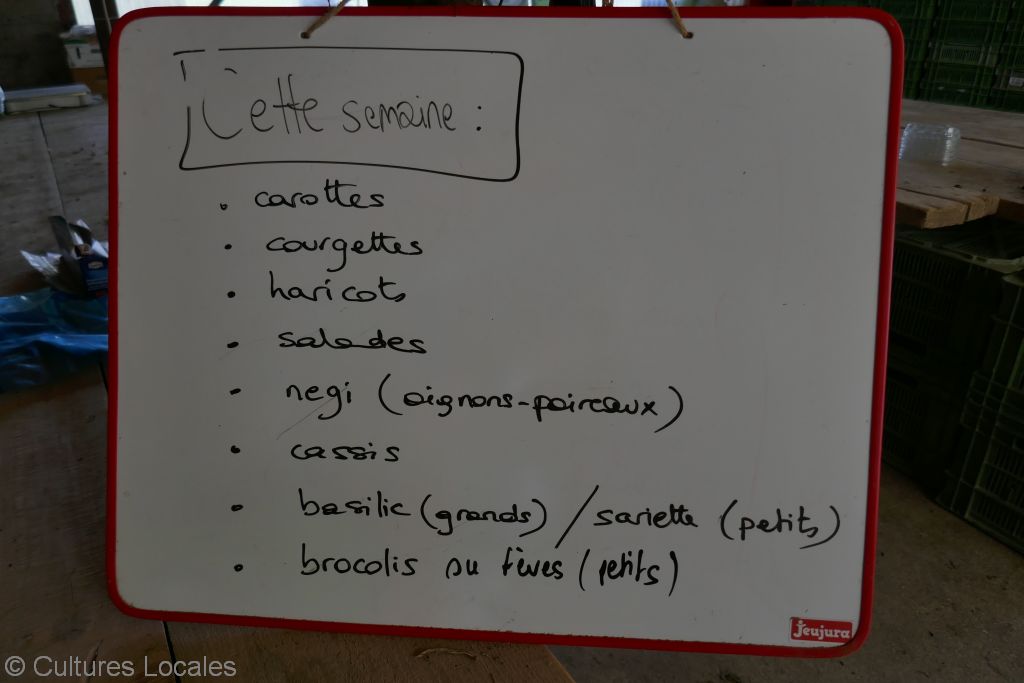 Cette semaine :
• carottes
• courgettes
• haricots
• salades
• negi (oignons-poireaux)
• cassis
• basilic (grands) / sariette (petits)
• brocolis ou fèves (petits)
Jeujura
© Cultures Locales